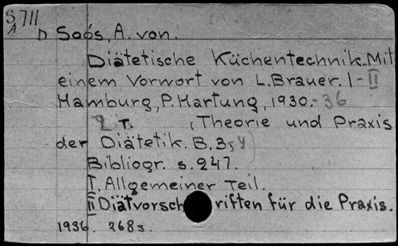 S 711
A
D Soós, A. von.
Diätetische Küchentechnik. Mit
einem Vorwort von L. Brauer. I-II
Hamburg, P. Hartung, 1930.-36
2 T. (Theorie und Praxis
der Diätetik. B. 3,4)
Bibliogr. s. 247.
I. Allgemeiner Teil.
II Diätvorschriften für die Praxis.
1936. 268 s.